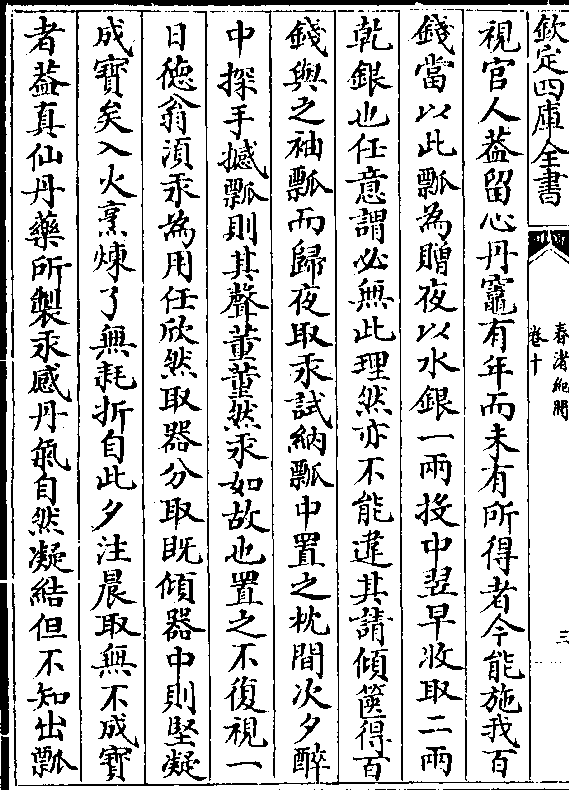 欽定四庫全書
春渚紀聞
卷十
三
視官人葢留心丹竈有年而未有所得者今能施我百
錢當以此瓢為贈夜以水銀一兩投中翌早收取二兩
乾銀也任意謂必無此理然亦不能違其請傾篋得百
錢與之袖瓢而歸夜取汞試納瓢中置之枕間次夕醉
中探手撼瓢則其聲董董然汞如故也置之不復視一
日徳翁湏汞為用任欣然取器分取既傾器中則堅凝
成寶矣入火烹煉了無耗折自此夕注晨取無不成寶
者葢真仙丹藥所製汞感丹氣自然凝結但不知出瓢